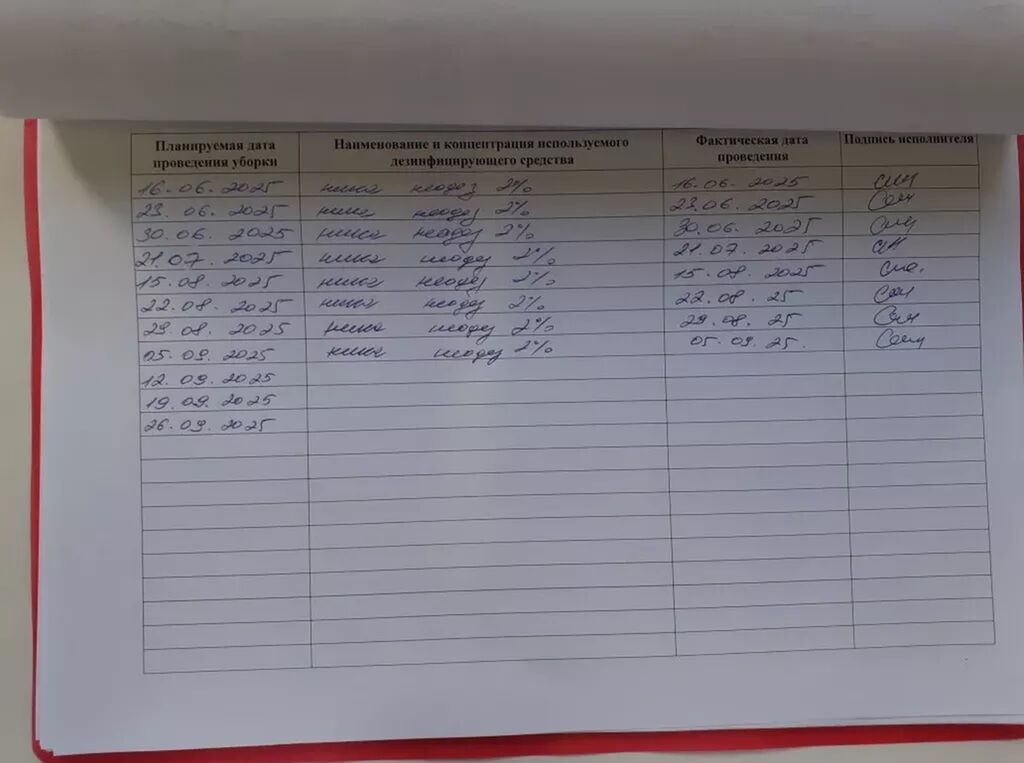 Планируемая дата проведения уборки Наименование и концентрация используемого дезинфицирующего средства Фактическая дата проведения Подпись исполнителя
16.06.2025 ника неодез 2% 16.06.2025
23.06.2025 ника неодез 2% 23.06.2025
30.06.2025 ника неодез 2% 30.06.2025
21.07.2025 ника неодез 2% 21.07.2025
15.08.2025 ника неодез 2% 15.08.2025
22.08.2025 ника неодез 2% 22.08.25
29.08.2025 ника неодез 2% 29.08.25
05.09.2025 ника неодез 2% 05.09.25.
12.09.2025
19.09.2025
26.09.2025